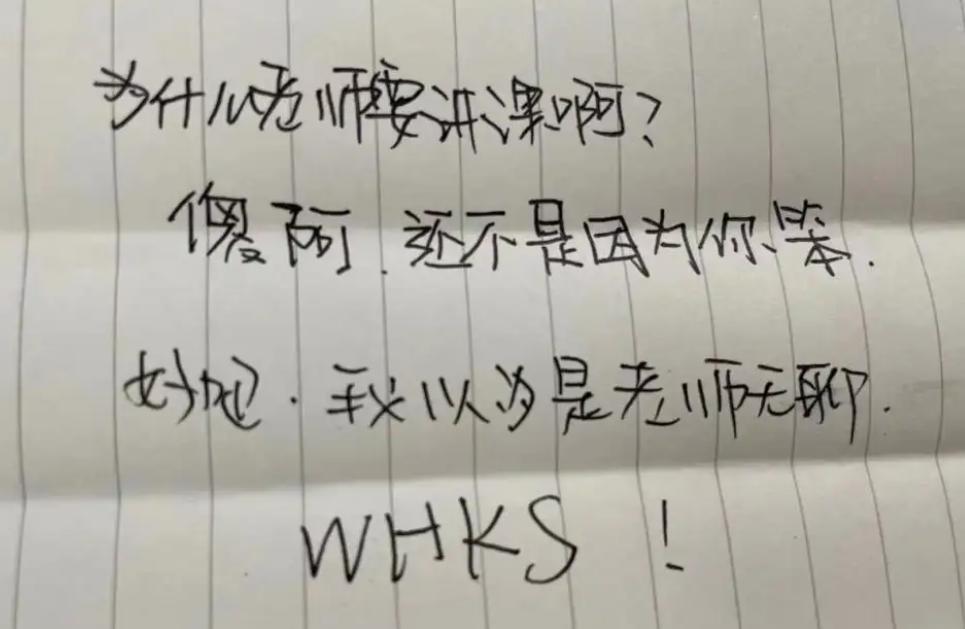 为什么老师要讲课啊?
傻啊.还不是因为你笨.
好吧.我以为是老师无聊.
WHKS!